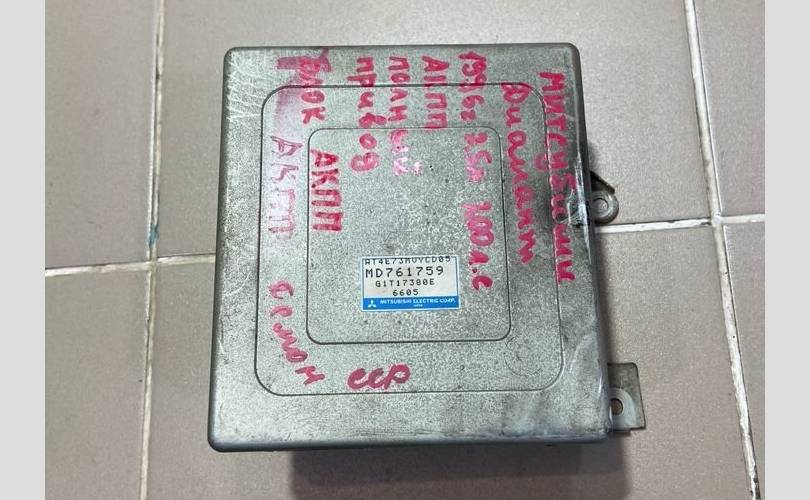 Митсубиши
Диамант
1996г 2.5л 200л.с
АКПП
полный
привод
Блок АКПП
АКПП
седан
ССР
AT4E73M0VYCD05
MD761759
G1T17380E
6605
MITSUBISHI ELECTRIC CORP.